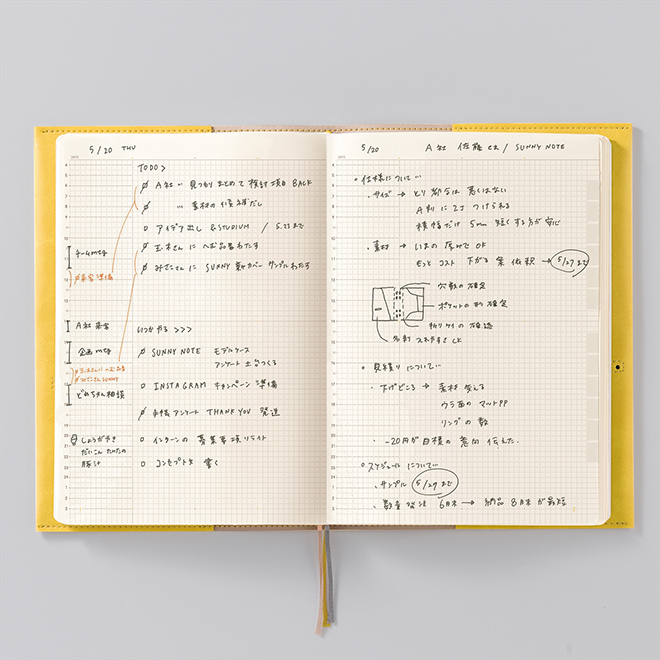 5/20 THU
TODO>
A社 〃 見つもりまとめて 検討項目 BACK
〃 素材の候補だし
アイデア出し &STUDIUM / 5.23まで
玉木さんに へお品書わたす
みさこさんに SUNNY 製カバー サンプルわたす
チームmtg
来客準備
A社 来客
企画mtg
いつかやる >>>
SUNNY NOTE モデルケース
アンケート 土台つくる
INSTAGRAM キャンペーン 準備
手帳アンケート THANK YOU 発送
インターンの 募集事項リライト
コンセプトを 書く
しょうがやき
だいこん
豚汁
5/20 A社 佐藤さん / SUNNY NOTE
仕様について…
・サイズ → とり都合は 悪くはない
A判に 2丁 つけられる
横幅だけ 5mm 短くする方が 安心
・素材 → いまの 厚みで OK
もっと コスト 下がる 素 → 5/27まで
穴数の確定
ポケットの 確定
折りケイの 確認
見積りについて…
・下げどころ → 素材 変える
ウラ面の マットPP
リングの 数
・-20円が目標の 意向 伝えた.
スケジュールについて…
・サンプル 5/29まで
・数量 発注 6月末 → 納品 8月末が最短